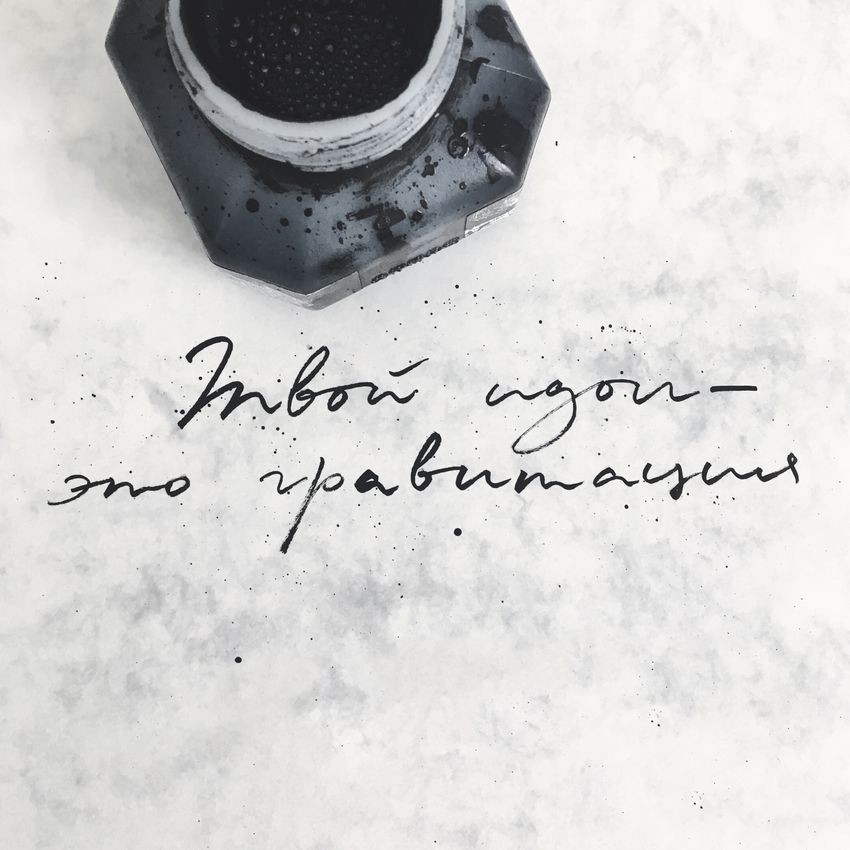 Твой идол —
это гравитация